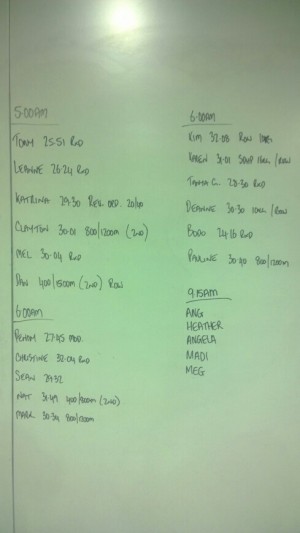 5:00AM
TOMM 25:51 RXD
LEANNE 26:24 RXD
KATRINA 29:30 DED. 20/40
CLAYTON 30:01 800/1200M (2ND)
MEL 30:04 RXD
DAN 400/1500M (2ND) ROW
6:00AM
27:45 MOD.
CHRISTINE 32:04 RXD
SEAN 29:32
NAT 31:49 400/800M (2ND)
MARK 30:34 800/1200M
6:00AM
KIM 32:08 ROW
KAREN 31:01 10KG /ROW
TANYA C. 28:30 RXD
DEANNE 30:30 10KG /ROW
BODO 24:16 RXD
PAULINE 30:40 800/1200M
9:15AM
ANG
HEATHER
ANGELA
MADI
MEG